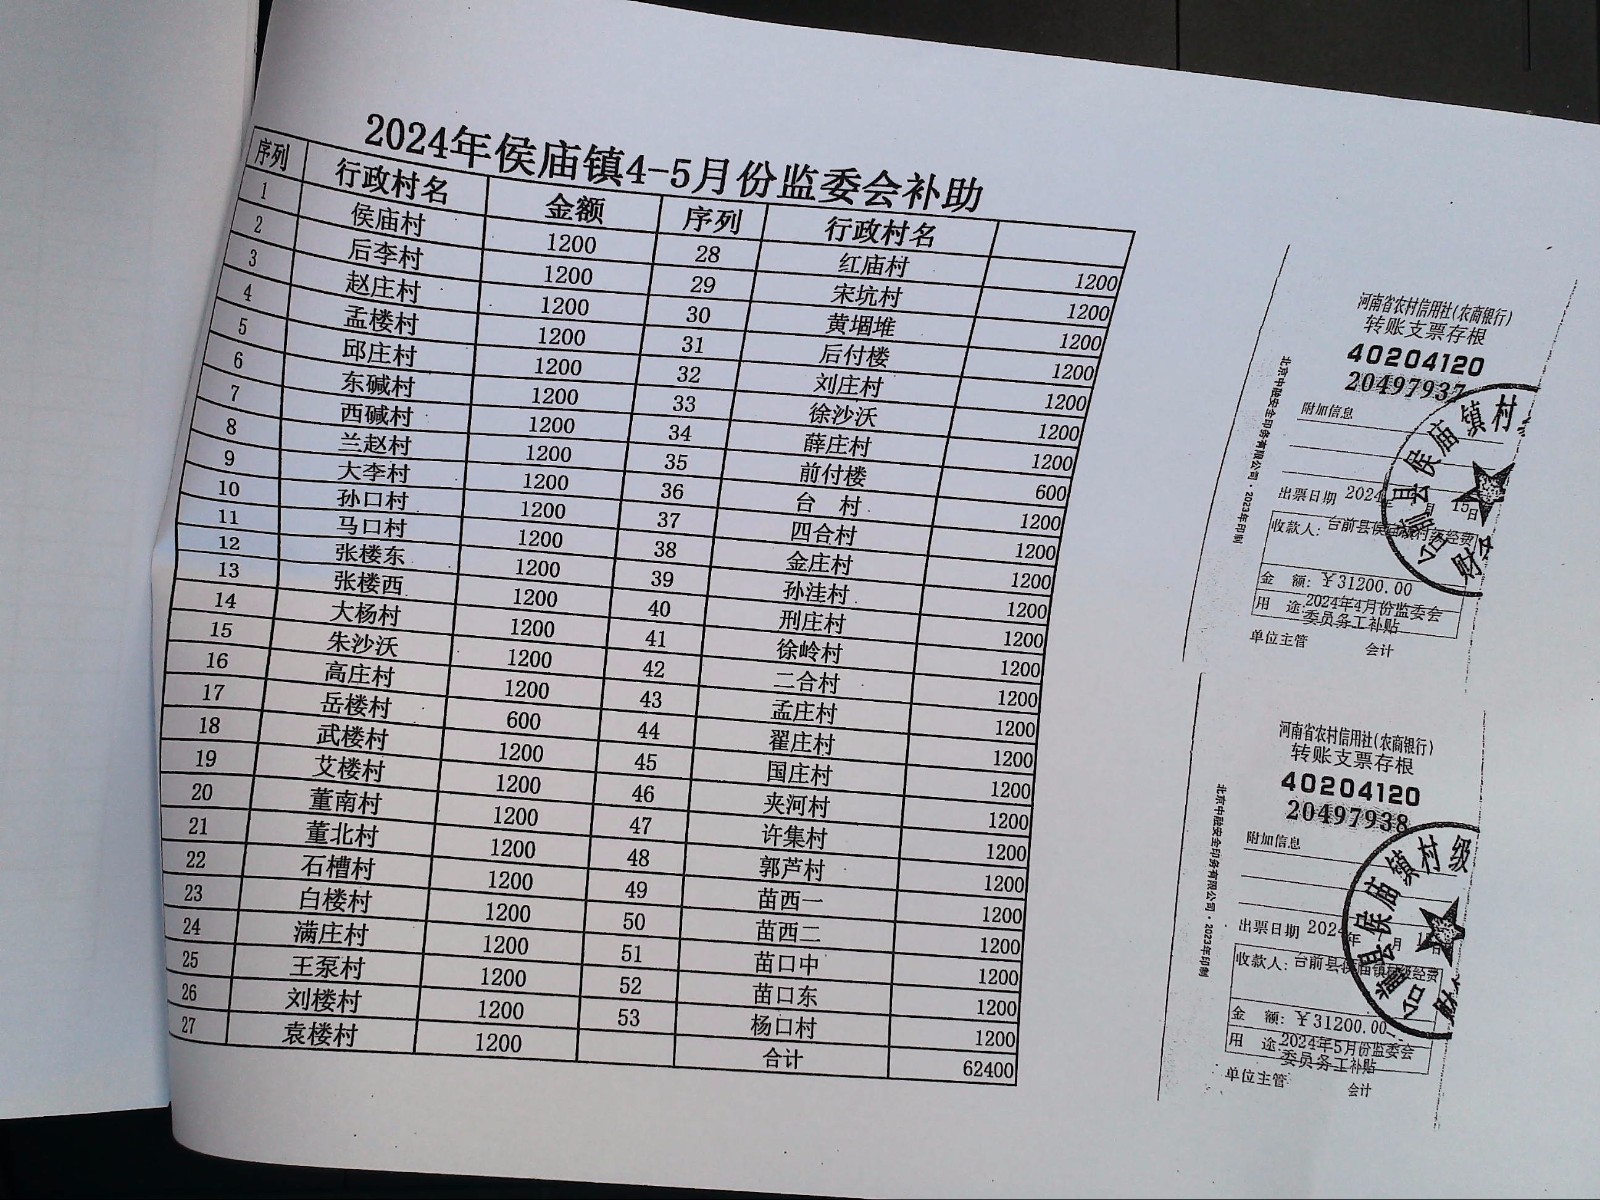 2024年侯庙镇4-5月份监委会补助
序列 行政村名 金额 序列 行政村名
1 侯庙村 1200 28 红庙村 1200
2 后李村 1200 29 宋坑村 1200
3 赵庄村 1200 30 黄堌堆 1200
4 孟楼村 1200 31 后付楼 1200
5 邱庄村 1200 32 刘庄村 1200
6 东碱村 1200 33 徐沙沃 1200
7 西碱村 1200 34 薛庄村 1200
8 兰赵村 1200 35 前付楼 600
9 大李村 1200 36 台 村 1200
10 孙口村 1200 37 四合村 1200
11 马口村 1200 38 金庄村 1200
12 张楼东 1200 39 孙洼村 1200
13 张楼西 1200 40 刑庄村 1200
14 大杨村 1200 41 徐岭村 1200
15 朱沙沃 1200 42 二合村 1200
16 高庄村 1200 43 孟庄村 1200
17 岳楼村 600 44 翟庄村 1200
18 武楼村 1200 45 国庄村 1200
19 艾楼村 1200 46 夹河村 1200
20 董南村 1200 47 许集村 1200
21 董北村 1200 48 郭芦村 1200
22 石槽村 1200 49 苗西一 1200
23 白楼村 1200 50 苗西二 1200
24 满庄村 1200 51 苗口中 1200
25 王泵村 1200 52 苗口东 1200
26 刘楼村 1200 53 杨口村 1200
27 袁楼村 1200 合计 62400
河南省农村信用社(农商银行)
转账支票存根
40204120
20497937
附加信息
出票日期 2024年 月 15日
收款人: 台前县侯庙镇村级经费
金 额: ¥31200.00
用 途 2024年4月份监委会
委员务工补贴
单位主管 会计
北京中融安全印务有限公司·2023年印制
台前县侯庙镇村
财
河南省农村信用社(农商银行)
转账支票存根
40204120
20497938
附加信息
出票日期 2024年 月 日
收款人: 台前县侯庙镇村级经费
金 额: ¥31200.00
用 途 2024年5月份监委会
委员务工补贴
单位主管 会计
北京中融安全印务有限公司·2023年印制
台前县侯庙镇村级
财